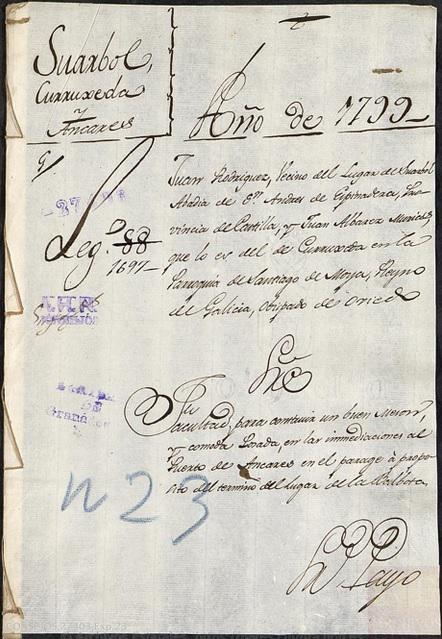 Suarbol,
Curruxeda
y
Ancares
Año de 1799
Juan Rodriguez, Vecino del Lugar de Suarbol
Abadia de Sn. Andres de Espinareda, Pro-
vincia de Castilla, y Juan Albarez
que lo es del de Curruxeda en la
Parroquia de Santiago de Moya, Reyno
de Galicia, Obispado de Oviedo
Leg.o 88
1697
Sre
Facultad, para construir un buen Meson,
y comoda Posada, en las immediaciones al
Puerto de Ancares en el parage à propo-
sito del termino del Lugar de la Balbora,
A.H.N.
n 23
Payo
CONSEJOS,27403,Exp.23